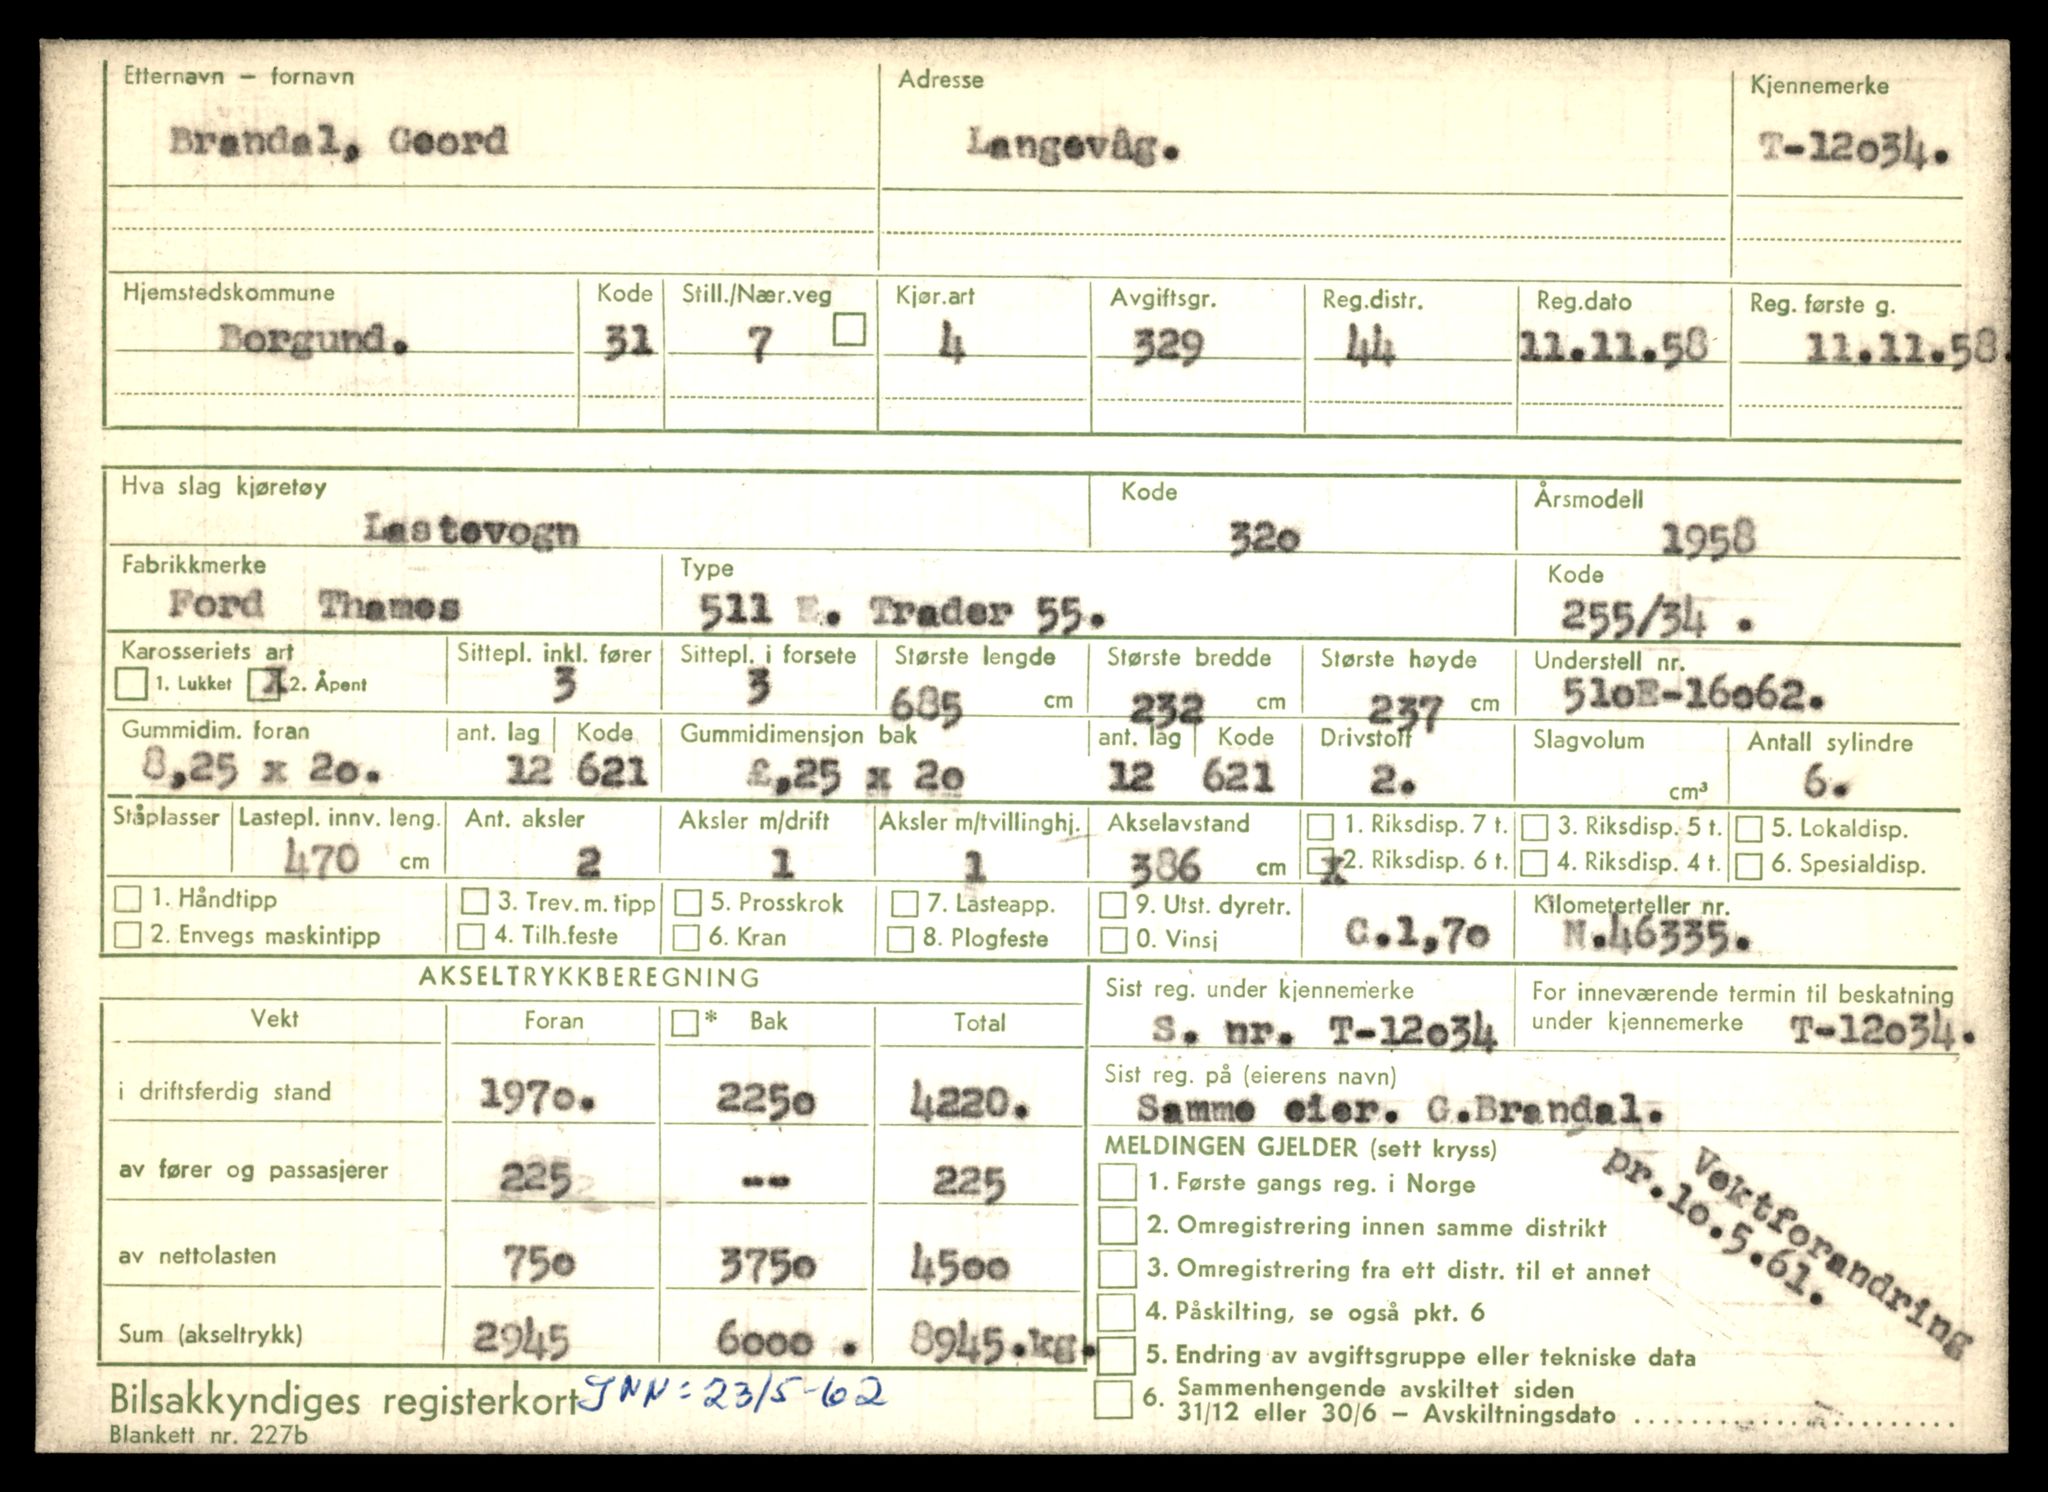 Etternavn – fornavn Adresse Kjennemerke
Brandal, Geord Langevåg. T-12034.
Hjemstedskommune Kode Still./Nær.veg Kjør.art Avgiftsgr. Reg.distr. Reg.dato Reg. første g.
Borgund. 31 7 4 329 44 11.11.58 11.11.58.
Hva slag kjøretøy Kode Årsmodell
Lastevogn 320 1958
Fabrikkmerke Type Kode
Ford Thames 511 E. Trader 55. 255/34 .
Karosseriets art Sittepl. inkl. fører Sittepl. i forsete Største lengde Største bredde Største høyde Understell nr.
1. Lukket X 2. Åpent 3 3 685 cm 232 cm 237 cm 510E-16062.
Gummidim. foran ant. lag Kode Gummidimensjon bak ant. lag Kode Drivstoff Slagvolum Antall sylindre
8,25 x 20. 12 621 £,25 x 20 12 621 2. cm³ 6.
Ståplasser Lastepl. innv. leng. Ant. aksler Aksler m/drift Aksler m/tvillinghj. Akselavstand 1. Riksdisp. 7 t. 3. Riksdisp. 5 t. 5. Lokaldisp.
470 cm 2 1 1 386 cm x 2. Riksdisp. 6 t. 4. Riksdisp. 4 t. 6. Spesialdisp.
1. Håndtipp 3. Trev. m. tipp 5. Prosskrok 7. Lasteapp. 9. Utst. dyretr. Kilometerteller nr.
2. Envegs maskintipp 4. Tilh.feste 6. Kran 8. Plogfeste 0. Vinsj C.1,70 N.46335.
AKSELTRYKKBEREGNING
Vekt Foran * Bak Total
i driftsferdig stand 1970. 2250 4220.
av fører og passasjerer 225 -- 225
av nettolasten 750 3750 4500
Sum (akseltrykk) 2945 6000 . 8945.kg.
Sist reg. under kjennemerke For inneværende termin til beskatning
S. nr. T-12034 under kjennemerke T-12034.
Sist reg. på (eierens navn)
Samme eier. G.Brandal.
MELDINGEN GJELDER (sett kryss)
1. Første gangs reg. i Norge
2. Omregistrering innen samme distrikt
3. Omregistrering fra ett distr. til et annet
4. Påskilting, se også pkt. 6
5. Endring av avgiftsgruppe eller tekniske data
6. Sammenhengende avskiltet siden
31/12 eller 30/6 – Avskiltningsdato
Vektforandring
pr.10.5.61.
Bilsakkyndiges registerkort INN = 23/5-62
Blankett nr. 227b